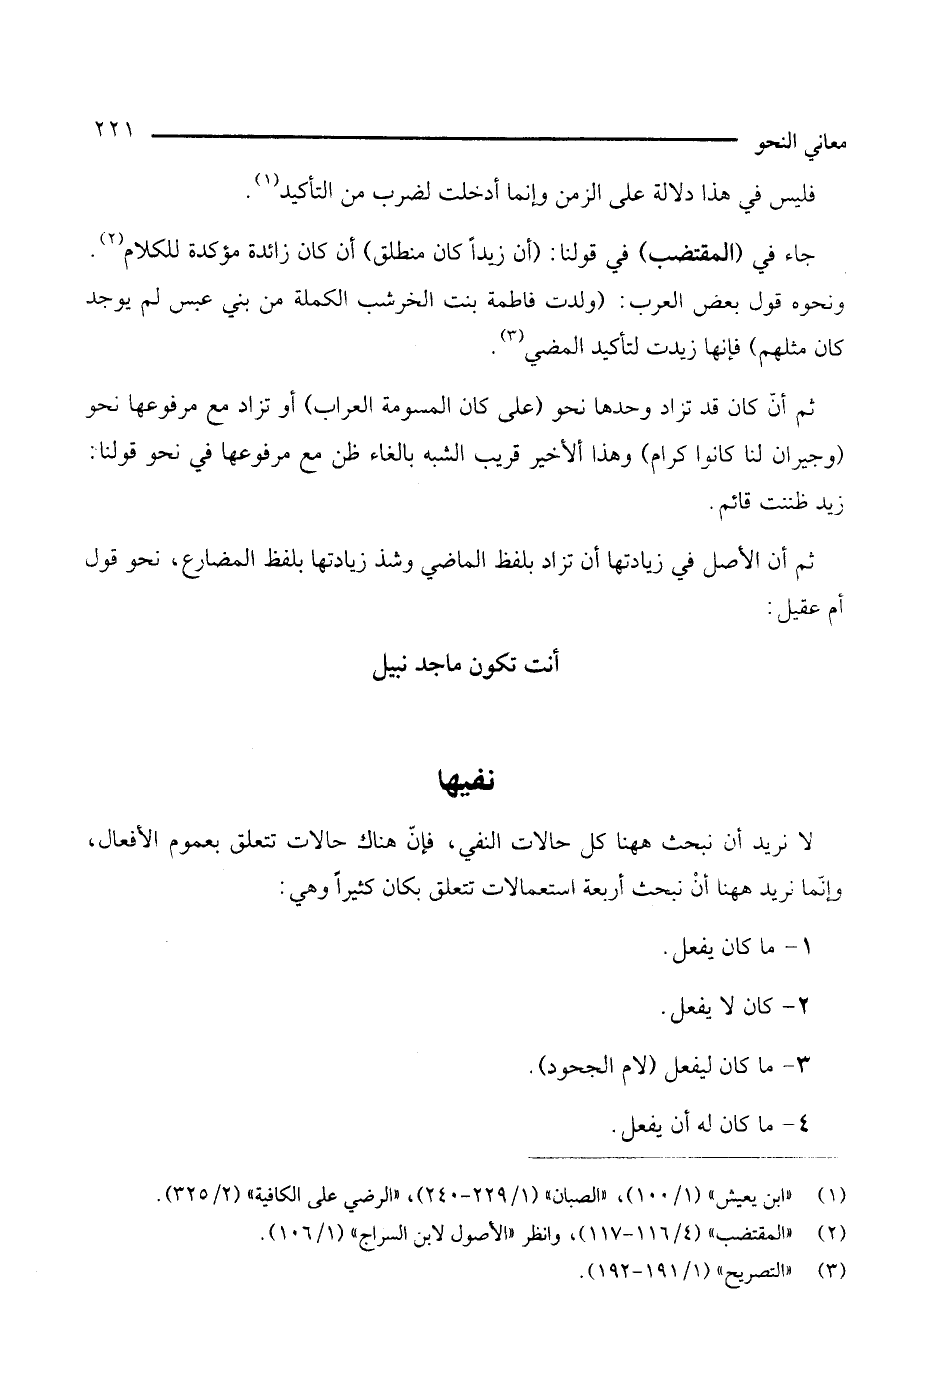 معاني النحو ٢٢١
فليس في هذا دلالة على الزمن وإنما أدخلت لضرب من التأكيد(١).
جاء في (المقتضب) في قولنا: (أن زيداً كان منطلق) أن كان زائدة مؤكدة للكلام(٢).
ونحوه قول بعض العرب: (ولدت فاطمة بنت الخرشب الكملة من بني عبس لم يوجد
كان مثلهم) فإنها زيدت لتأكيد المضي(٣).
ثم أنّ كان قد تزاد وحدها نحو (على كان المسومة العراب) أو تزاد مع مرفوعها نحو
(وجيران لنا كانوا كرام) وهذا ألأخير قريب الشبه بالغاء ظن مع مرفوعها في نحو قولنا:
زيد ظننت قائم.
ثم أن الأصل في زيادتها أن تزاد بلفظ الماضي وشذ زيادتها بلفظ المضارع، نحو قول
أم عقيل:
أنت تكون ماجد نبيل
نفيها
لا نريد أن نبحث ههنا كل حالات النفي، فإنّ هناك حالات تتعلق بعموم الأفعال،
وإنّما نريد ههنا أنْ نبحث أربعة استعمالات تتعلق بكان كثيراً وهي:
١- ما كان يفعل.
٢- كان لا يفعل.
٣- ما كان ليفعل (لام الجحود).
٤- ما كان له أن يفعل.
(١) «ابن يعيش» (١/١٠٠)، «الصبان» (١/٢٢٩-٢٤٠)، «الرضي على الكافية» (٢/٣٢٥).
(٢) «المقتضب» (٤/١١٦-١١٧)، وانظر «الأصول لابن السراج» (١/١٠٦).
(٣) «التصريح» (١/١٩١-١٩٢).